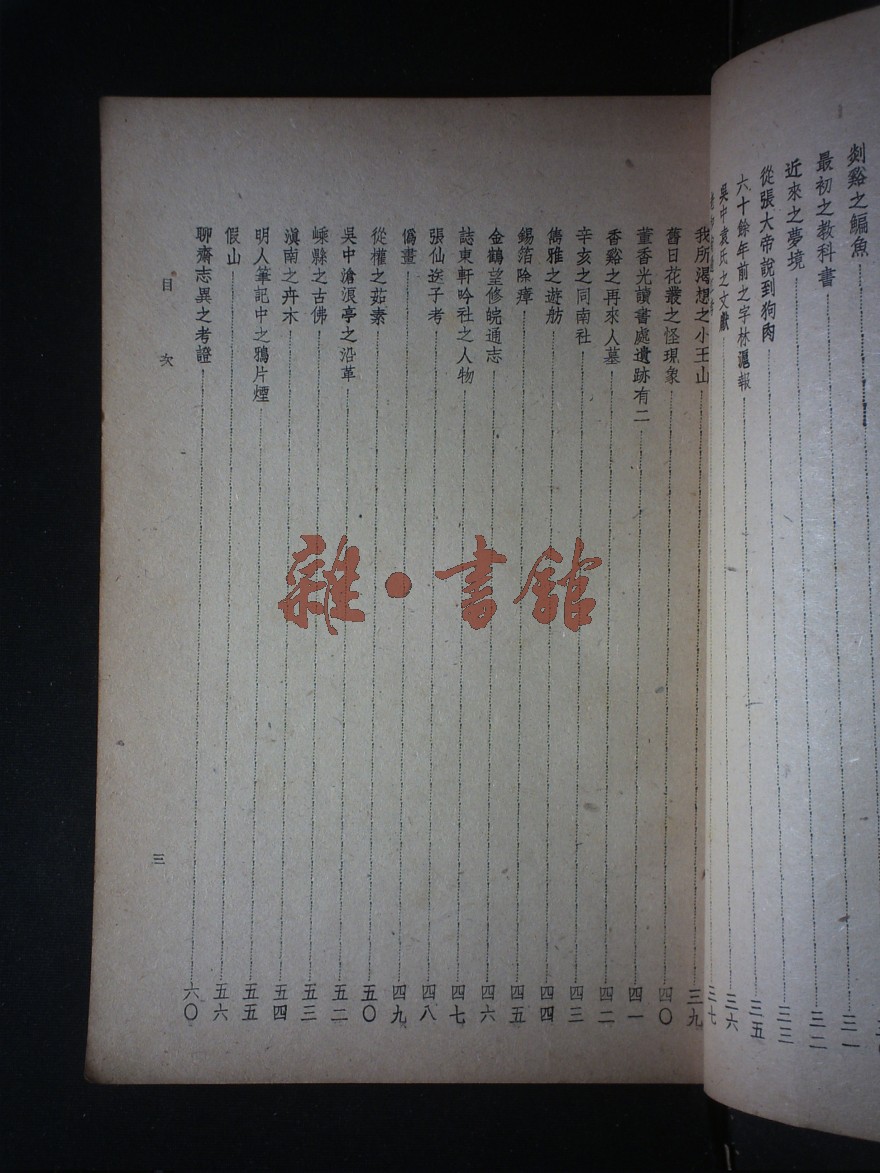 剡谿之鯿魚
最初之教科書 三一
近來之夢境 三二
從張大帝說到狗肉 三三
六十餘年前之字林滬報 三五
吳中袁氏之文獻 三六
三七
我所渴想之小王山 三九
舊日花叢之怪現象 四〇
董香光讀書處遺跡有二 四一
香谿之再來人墓 四二
辛亥之同南社 四三
儁雅之遊舫 四四
錫箔除瘴 四五
金鶴望修皖通志 四六
誌東軒吟社之人物 四七
張仙送子考 四八
僞畫 四九
從權之茹素 五〇
吳中滄浪亭之沿革 五二
嵊縣之古佛 五三
滇南之卉木 五四
明人筆記中之鴉片煙 五五
假山 五六
聊齋志異之考證 六〇
目次
三
雜·書館